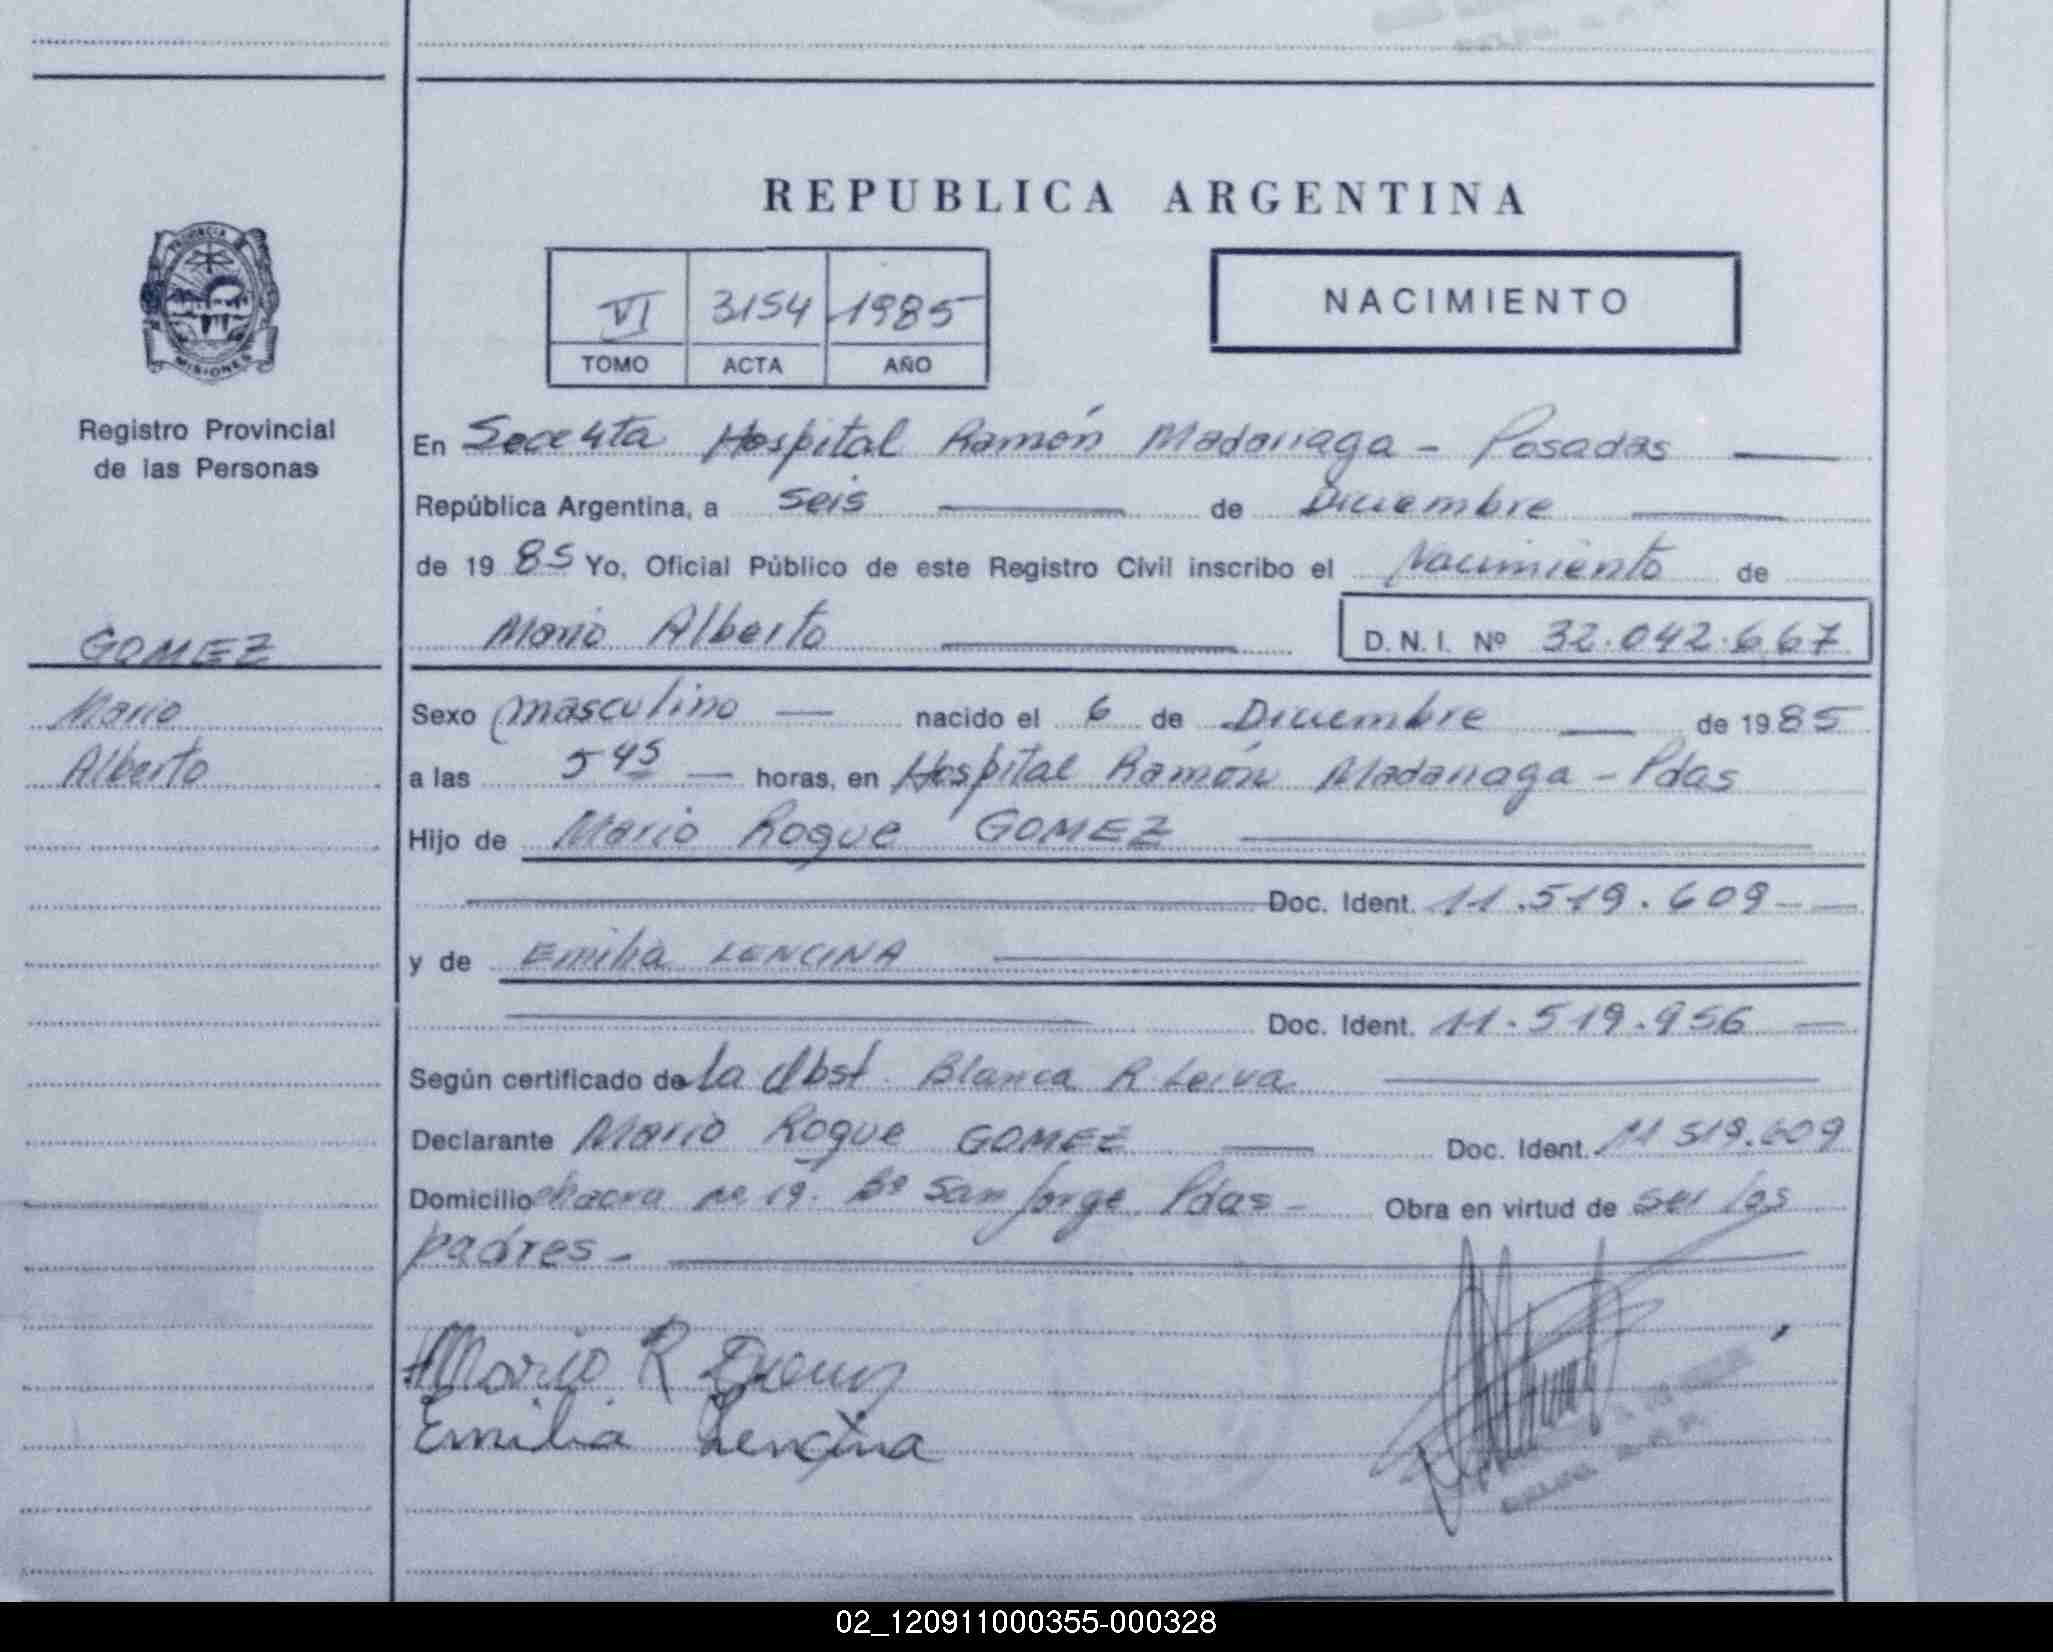 REPUBLICA ARGENTINA
PROVINCIA DE
MISIONES
VI 3154 1985
TOMO ACTA AÑO
NACIMIENTO
Registro Provincial
de las Personas
En Secc 4ta Hospital Ramón Madariaga - Posadas
República Argentina, a seis de Diciembre
de 1985 Yo, Oficial Público de este Registro Civil inscribo el Nacimiento de
Mario Alberto D.N.I. Nº 32.042.667
GOMEZ
Mario
Alberto
Sexo masculino nacido el 6 de Diciembre de 1985
a las 5 45 horas, en Hospital Ramón Madariaga - Pdas
Hijo de Mario Roque GOMEZ
Doc. Ident. 11.519.609
y de Emilia LENCINA
Doc. Ident. 11.519.956
Según certificado de la Obst. Blanca R Leiva
Declarante Mario Roque GOMEZ Doc. Ident. 11 519.609
Domicilio chacra no 19. Bº San Jorge Pdas - Obra en virtud de ser los
padres -
Mario R
Emilia Lencina
02_120911000355-000328